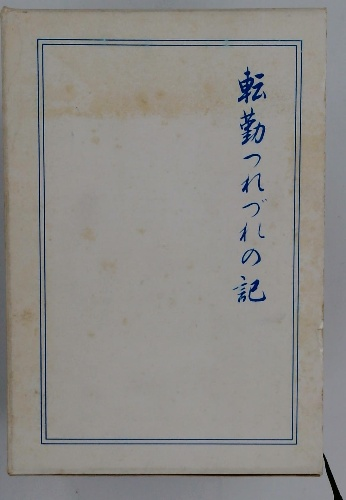 転勤つれづれの記